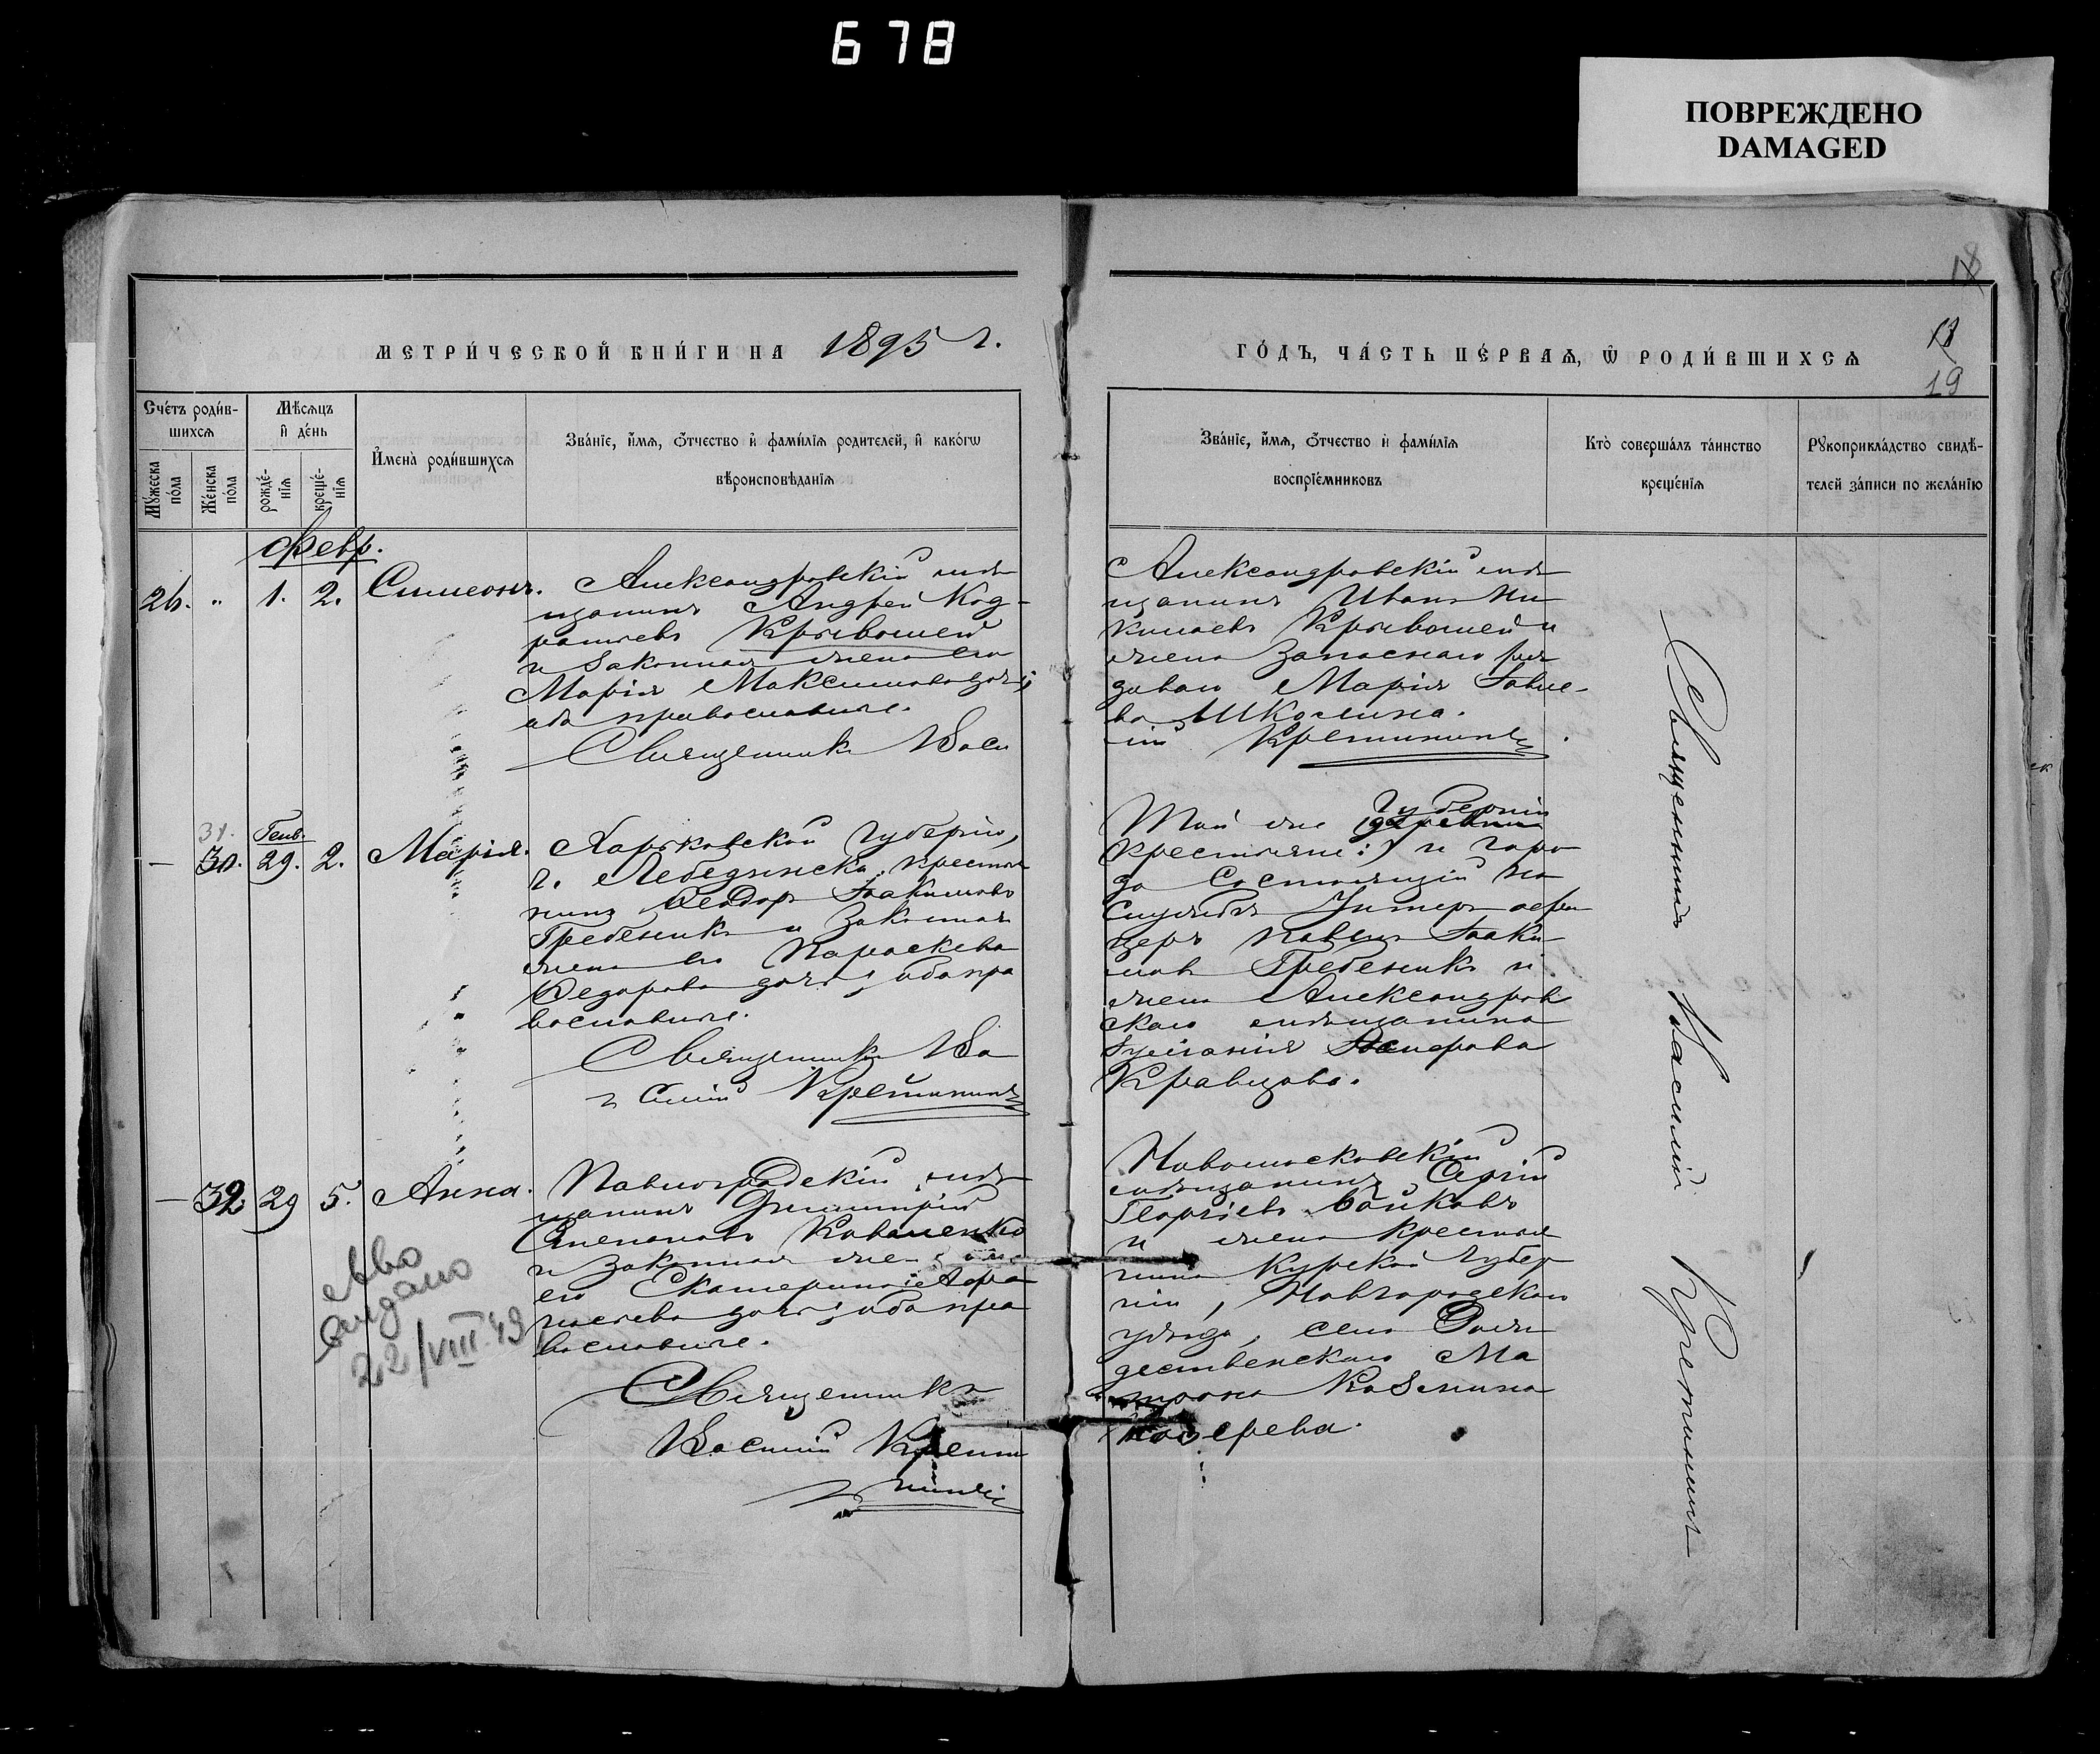 678
ПОВРЕЖДЕНО
DAMAGED
18
МЕТРИ́ЧЕСКОЙ КНИ́ГИ НА 1895 г.
ГО́ДЪ, ЧА́СТЬ ПЕ́РВАѦ, Ѿ РОДИ́ВШИХСѦ
19
Сче́тъ роди́в-
шихсѧ
Мѣсѧцъ
и҆ де́нь
Мꙋ́жеска
по́ла
Же́нска
по́ла
рожде́-
нїѧ
креще́-
нїѧ
И҆мена̀ роди́вшихсѧ
Зва́нїе, и҆́мѧ, ѻ҆́тчество и҆ фами́лїѧ родителей, и҆ како́гѡ
вѣроисповѣ́данїѧ
Зва́нїе, и҆́мѧ, ѻ҆́тчество и҆ фами́лїѧ
воспрїе́мниковъ
Кто̀ соверша́лъ та́инство
креще́нїѧ
Рꙋкоприкла́дство свидѣ́-
телей за́писи по жела́нїю
Февр.
26. " 1. 2. Симеонъ.
Александровскій мѣ
щанинъ Андрей Код-
ратьевъ Крывошей
и законная жена его
Марія Максимова дочь;
оба православные.
Священникъ Васи
Александровскій мѣ
щанинъ Иванъ Ни
колаевъ Крывошей и
жена запаснаго ря
доваго Марія Павле-
ва Школина.
лій Кретининъ.
31.
Генв.
— 30. 29. 2. Марія.
Харьковской губерніи,
г. Лебедянска крестья
нинъ Ѳеодоръ Іоакимовъ
Гребеникъ и законная
жена его Параскева
Ѳедорова дочь, оба пра
вославные.
Священникъ Ва
силій Кретининъ
Той же губерніи
крестьяне:) и горо
да состоящій на
службѣ Унтеръ офи
церъ Павелъ Іоаки
мовъ Гребеникъ и
жена Александров
скаго мѣщанина
Кравцова.
— 32 29 5. Анна.
Павлоградскій мѣ
щанинъ Димитрій
Стефановъ Коваленко
и законная же
его Екатерина
дочь, оба пра
вославные.
Священникъ
Василій Крети
нинъ
Новомосковскій
мѣщанинъ Сергій
Георгіевъ Бойковъ
и жена крестья
нина Курской губер
ніи, Новгородскаго
уѣзда, села Рож
дественскаго Ма
трона
выдано
22/VIII 49
Священникъ Василій Кретининъ